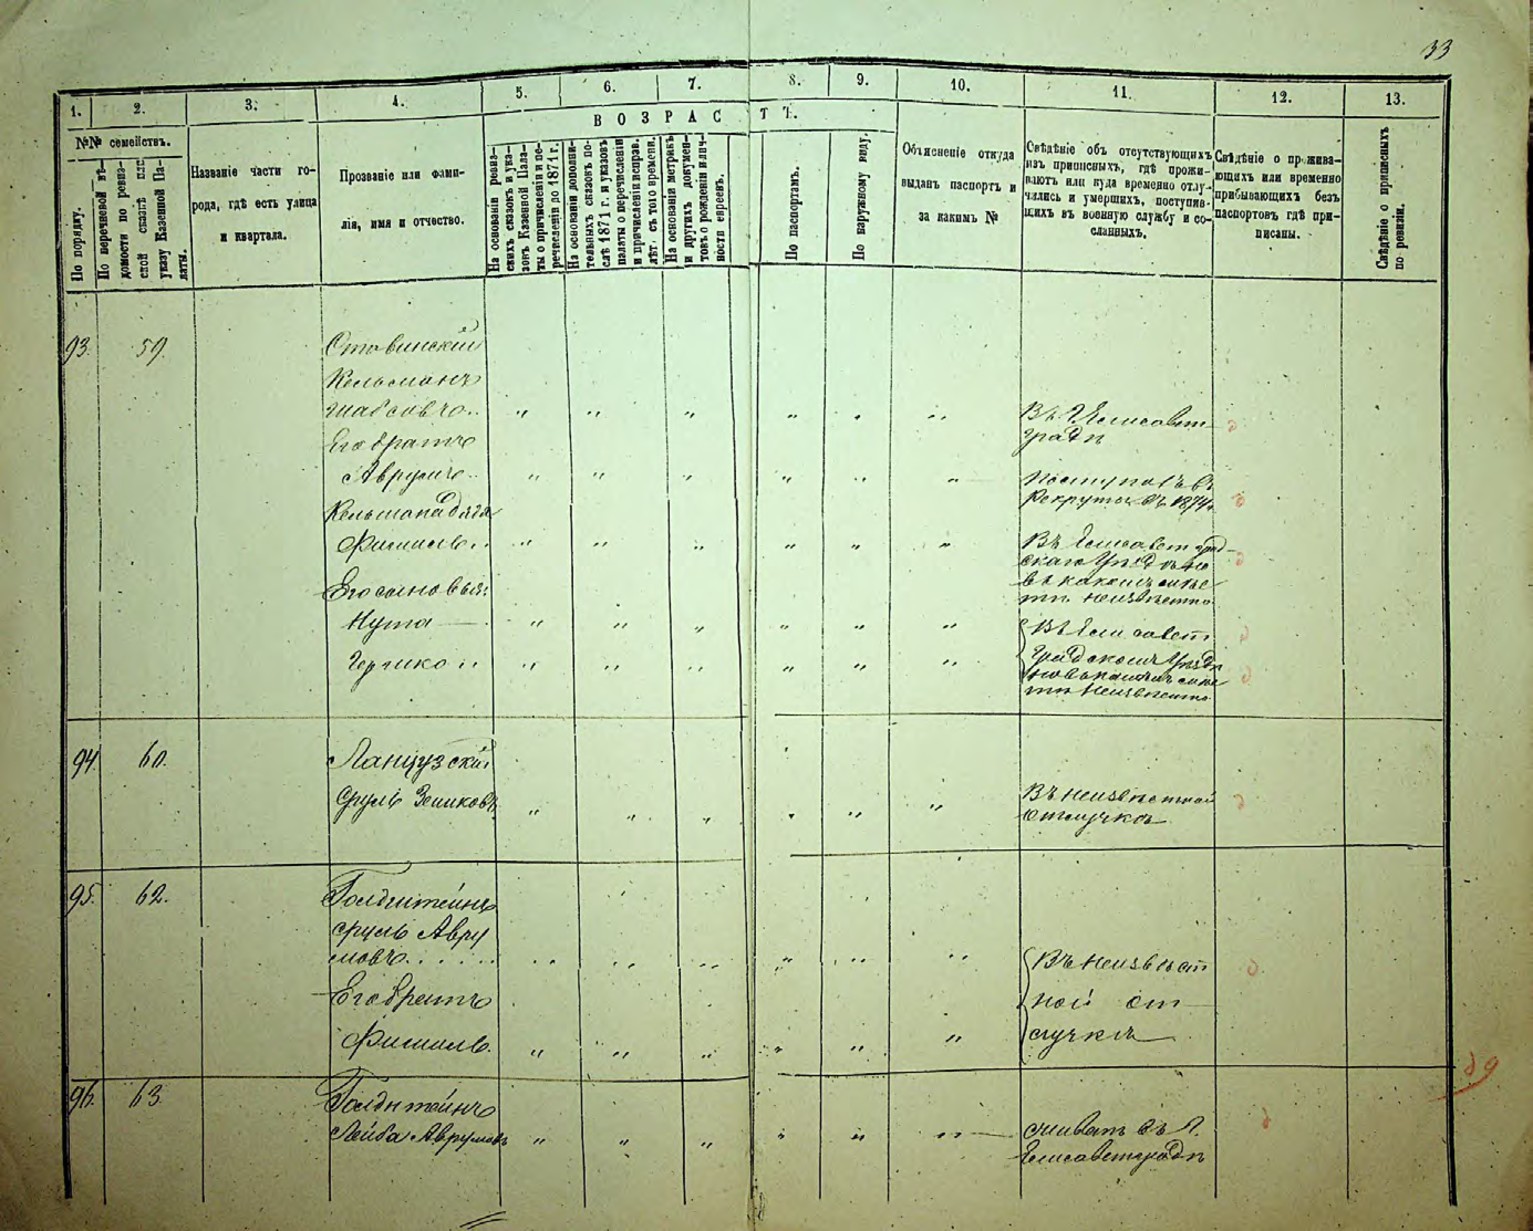 33
1. 2. 3. 4. 5. 6. 7. 8. 9. 10. 11. 12. 13.
№№ семействъ.
По порядку.
По перечневой вѣ-
домости по ревиз-
ской сказкѣ или
указу Казенной Па-
латы.
Названіе части го-
рода, гдѣ есть улица
и квартала.
Прозваніе или фами-
лія, имя и отчество.
ВОЗРАСТЪ.
На основаніи ревиз-
скихъ сказокъ и ука-
зовъ Казенной Пала-
ты о причисленіи и пе-
речисленіи до 1871 г.
На основаніи дополни-
тельныхъ сказокъ по-
слѣ 1871 г. и указовъ
палаты о перечисленіи
и причисленіи исправ.
лѣт. съ того времени.
На основаніи метрикъ
и другихъ докумен-
товъ о рожденіи и лич-
ности евреевъ.
По паспортамъ.
По наружному виду.
Объясненіе откуда
выданъ паспортъ и
за какимъ №
Свѣдѣніе объ отсутствующихъ
изъ приписныхъ, гдѣ прожи-
ваютъ или куда временно отлу-
чились и умершихъ, поступив-
шихъ въ военную службу и со-
сланныхъ.
Свѣдѣніе о прожива-
ющихъ или временно
прибывающихъ безъ
паспортовъ гдѣ при-
писаны.
Свѣдѣніе о приписныхъ
по ревизіи.
93. 59. Ставинскій
Кельманъ
Шабсовъ.. " " " " " " Въ г. Елисавет
градѣ
Его братъ
Аврумъ.. " " " " " " Поступилъ въ
Рекруты въ 1874 г.
Кельмана дядя
Фишель.. " " " " " " Въ Елисаветград-
скаго уѣзд но
въ какомъ мѣс
тѣ неизвѣстно.
Его сыновья:
Нута — " " " " " " Въ Елисавет
Гершко " " " " " " градскомъ уѣздѣ
но въ какомъ мѣс
тѣ неизвѣстно
94. 60. Ланцузскій
Сруль Зеликовъ " " " " " " Въ неизвѣстной
отлучкѣ
95. 62. Голдштейнъ
Сруль Авру
мовъ..... " " " " " " Въ неизвѣст
Его братъ ной от
Фишель. " " " " " " лучкѣ
96. 63. Голдштейнъ
Лейба Аврумовъ " " " " " " Живетъ въ г.
Елисаветградѣ